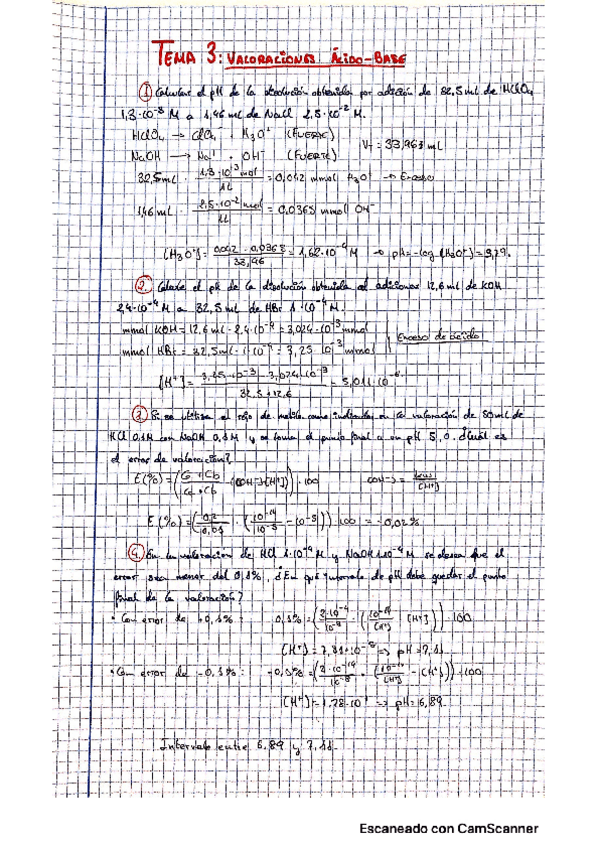 TEMA 3: VALORACIONES ÁCIDO-BASE
① Calcular el pH de la disolución obtenida por adición de 32,5 ml de HClO4
1,3·10⁻³ M a 1,46 ml de NaOH 2,5·10⁻² M.
HClO4 → ClO4⁻ + H3O⁺ (FUERTE)
NaOH → Na⁺ + OH⁻ (FUERTE)
VT = 33,963 ml
32,5 ml · 1,3·10⁻³ mol / 1L = 0,042 mmol H3O⁺ → Exceso
1,46 ml · 2,5·10⁻² mol / 1L = 0,0365 mmol OH⁻
[H3O⁺] = 0,042 - 0,0365 / 33,96 = 1,62·10⁻⁴ M → pH = -log [H3O⁺] = 3,79.
② Calcule el pH de la disolución obtenida al adicionar 12,6 ml de KOH
2,4·10⁻⁴ M a 32,5 ml de HBr 1·10⁻⁴ M.
mmol KOH = 12,6 ml · 2,4·10⁻⁴ = 3,024·10⁻³ mmol
mmol HBr = 32,5 ml · 1·10⁻⁴ = 3,25·10⁻³ mmol
Exceso de ácido
[H⁺] = 3,25·10⁻³ - 3,024·10⁻³ / 32,5 + 12,6 = 5,011·10⁻⁶
③ Si se utiliza el rojo de metilo como indicador en la valoración de 50 ml de
HCl 0,1M con NaOH 0,1M y se toma el punto final a un pH 5,0. ¿Cuál es
el error de valoración?
E(%) = (Ca + Cb / Ca · Cb · ([OH⁻] - [H⁺])) · 100
[OH⁻] = / [H⁺]
E(%) = (0,2 / 0,01 · (10⁻¹⁴ / 10⁻⁵ - 10⁻⁵)) · 100 = -0,02%
④ En la valoración de HCl 1·10⁻⁴ M y NaOH 1·10⁻⁴ M se desea que el
error sea menor del 0,1%, ¿En qué intervalo de pH debe quedar el punto
final de la valoración?
• Con error de +0,1%: 0,1% = (2·10⁻⁴ / 10⁻⁸ · (10⁻¹⁴ / [H⁺] - [H⁺])) · 100
[H⁺] = 7,81·10⁻⁸ => pH = 7,11.
• Con error de -0,1%: -0,1% = (2·10⁻⁴ / 10⁻⁸ · (10⁻¹⁴ / [H⁺] - [H⁺])) · 100
[H⁺] = 1,28·10⁻⁷ => pH = 6,89.
Intervalo entre 6,89 y 7,11.
Escaneado con CamScanner